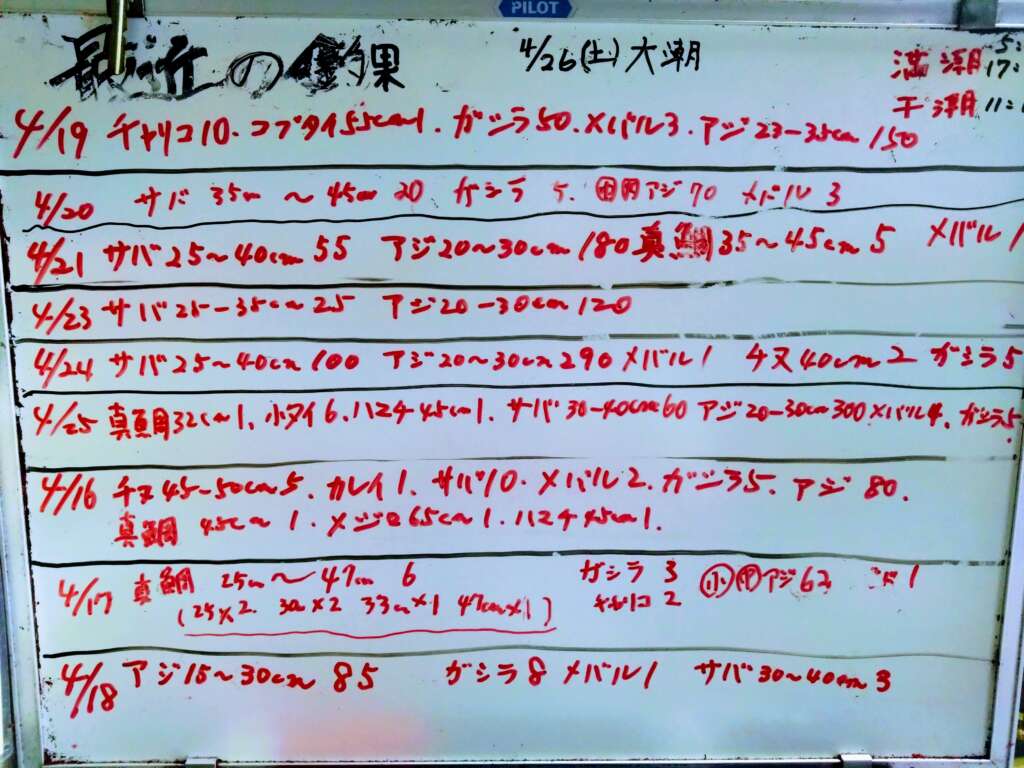 PILOT
最近の釣果 4/26(土)大潮 満潮 5:
17:
干潮 11:
4/19 チャリコ10. コブダイ55cm1. ガシラ50. メバル3. アジ23-35cm 150
4/20 サバ 35cm ~ 45cm 20 ガシラ 5. アジ70 メバル 3
4/21 サバ25~40cm 55 アジ20~30cm 180 真鯛35~45cm 5 メバル1
4/23 サバ25-35cm25 アジ20-30cm 120
4/24 サバ25~40cm 100 アジ20~30cm290 メバル1 チヌ40cm2 ガシラ5
4/25 真鯛32cm1. 小ダイ6. ハマチ45cm1. サバ30-40cm60 アジ20-30cm300 メバル4. ガシラ5
4/16 チヌ45-50cm5. カレイ1. サバ10. メバル2. ガシラ5. アジ80.
真鯛 45cm 1. メジロ65cm1. ハマチ45cm1.
4/17 真鯛 25cm~47cm 6 ガシラ 3 小中アジ62 1
(25×2 30cm×2 33cm×1 47cm×1) チャリコ 2
4/18 アジ15~30cm 85 ガシラ8 メバル1 サバ30~40cm3